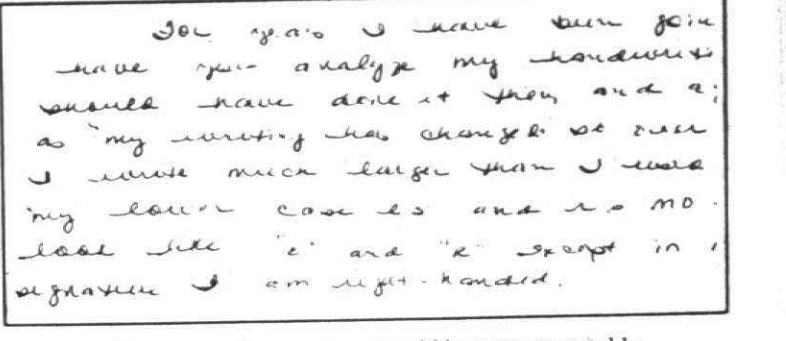 For years I have been goin
have you analyze my handwriti
should have done it then and a
as my writing has changed. At
I wrote much larger than I used
my lower case es and rs no
look like "e" and "r" except in
signature I am right-handed.